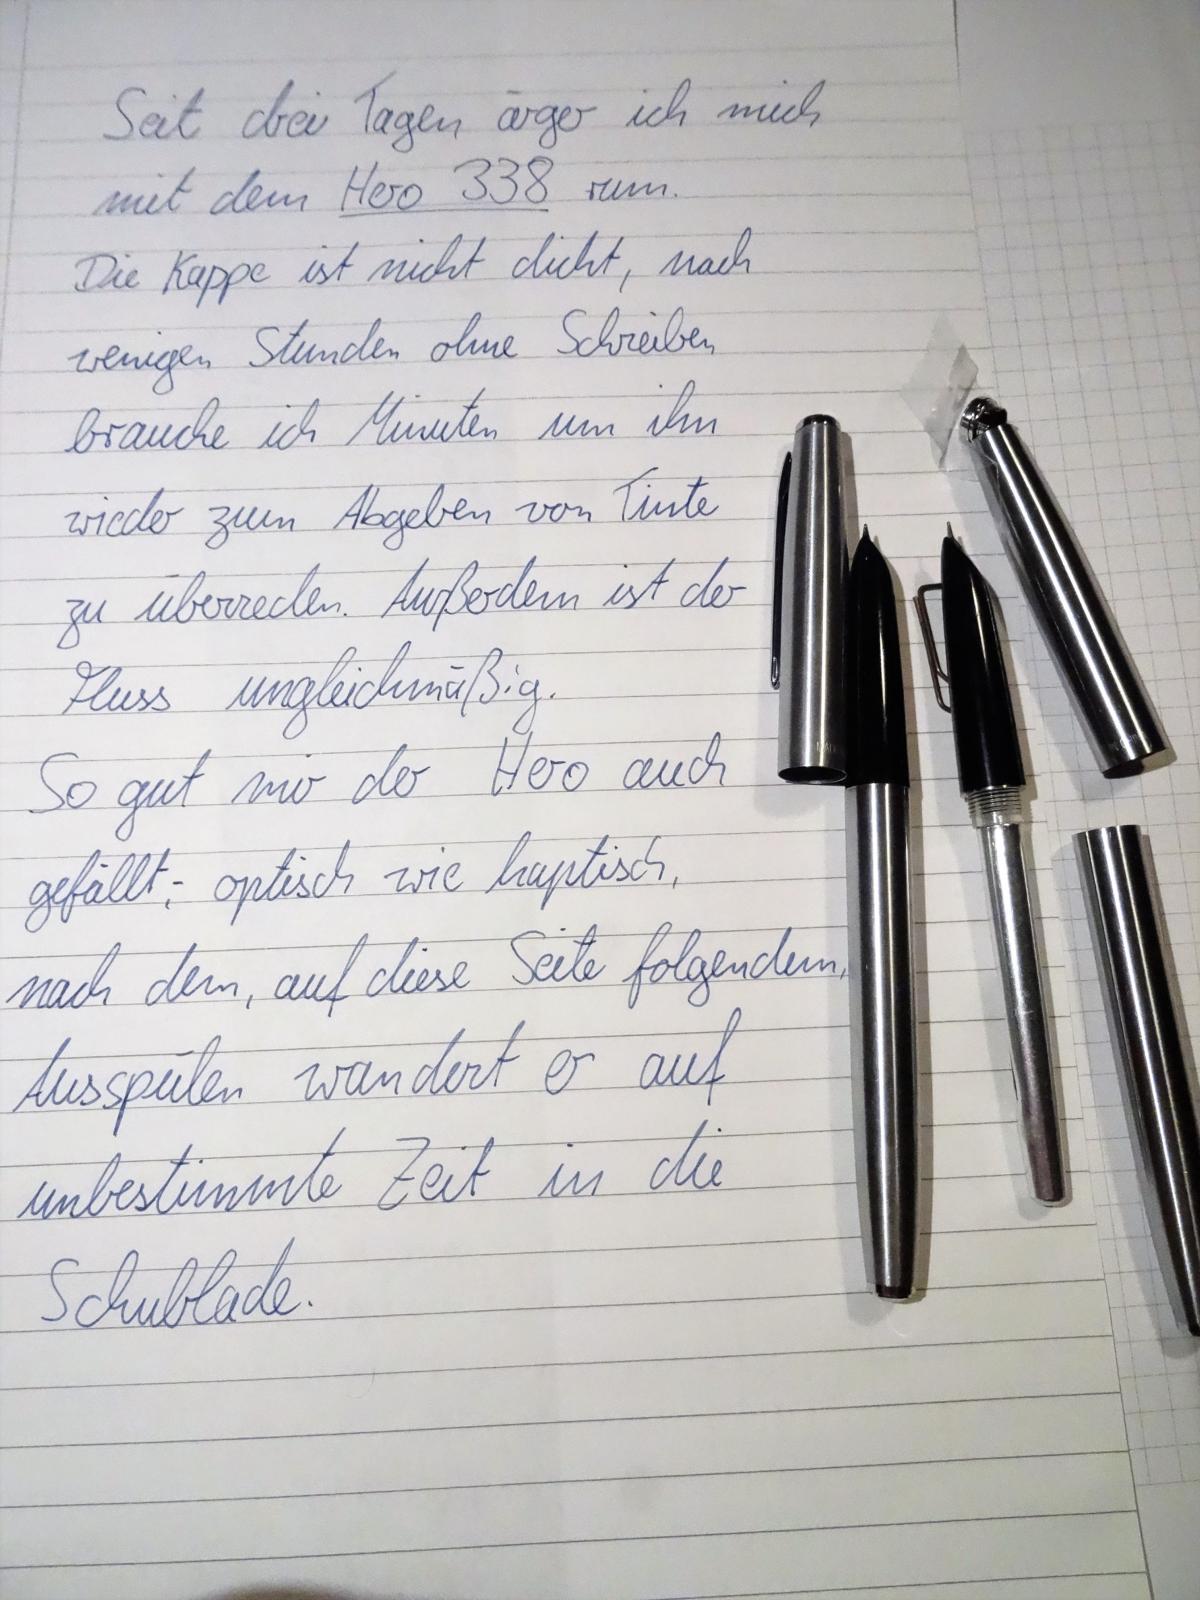 Seit drei Tagen ärger ich mich
mit dem Hero 338 rum.
Die Kappe ist nicht dicht, nach
wenigen Stunden ohne Schreiben
brauche ich Minuten um ihn
wieder zum Abgeben von Tinte
zu überreden. Außerdem ist der
Fluss ungleichmäßig.
So gut mir der Hero auch
gefällt; optisch wie haptisch,
nach dem, auf diese Seite folgendem,
Ausspülen wandert er auf
unbestimmte Zeit in die
Schublade.